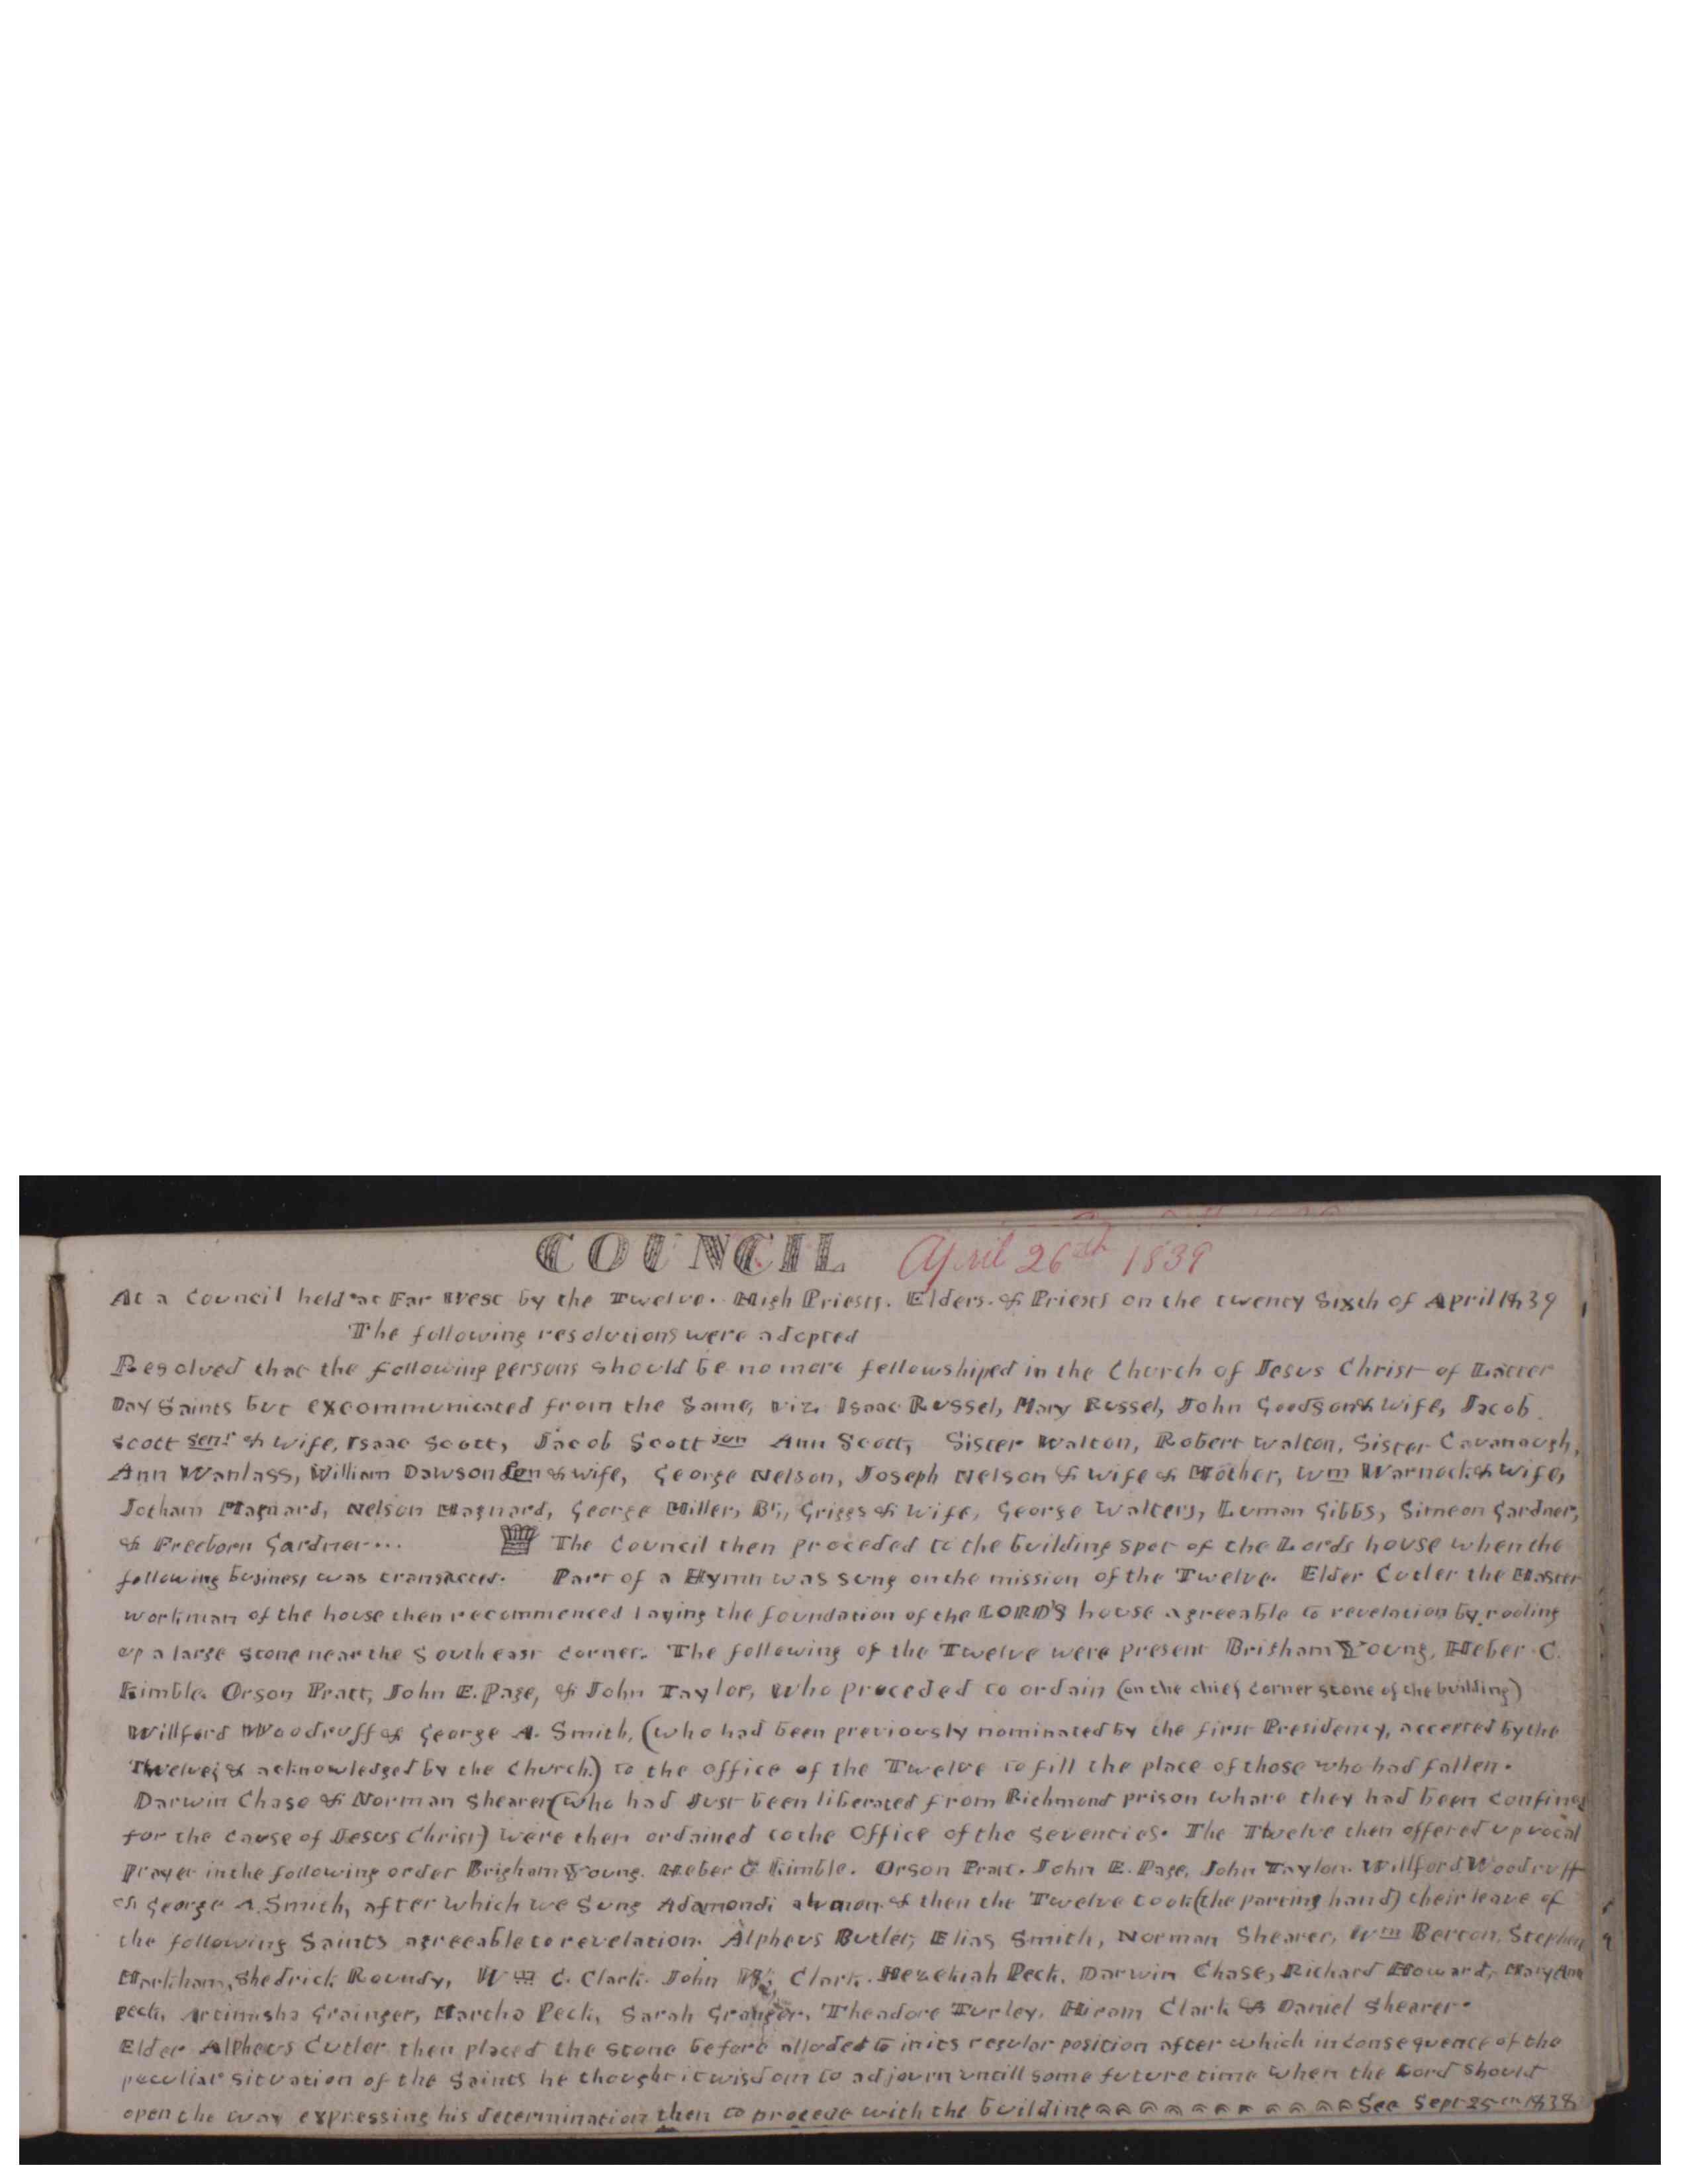 COUNCIL April 26th 1839
At a Council held at Far West by the Twelve. High Priests. Elders. & Priests on the twenty Sixth of April 1839
The following resolutions were adopted
Resolved that the following persons should be no more fellowshiped in the Church of Jesus Christ of Latter
Day Saints but excommunicated from the Same, viz. Isaac Russel, Mary Russel, John Goodson & wife, Jacob
Scott Senr & wife, Isaac Scott, Jacob Scott Jun Ann Scott, Sister Walton, Robert Walton, Sister Cavanaugh,
Ann Wanlass, William Dawson Sen & wife, George Nelson, Joseph Nelson & wife & Mother, Wm Warnock & wife,
Jotham Maynard, Nelson Maynard, George Miller, Br,, Griggs & wife, George Walters, Luman Gibbs, Simeon Gardner,
& Freeborn Gardner... The Council then proceded to the building spot of the Lords house when the
following business was transacted. Part of a Hymn was sung on the mission of the Twelve. Elder Cutler the Master
workman of the house then recommenced laying the foundation of the LORD'S house agreeable to revelation by rooling
up a large Stone near the South east corner. The following of the Twelve were present Brigham Young, Heber C.
Kimble. Orson Pratt, John E. Page, & John Taylor, who proceded to ordain (on the chief corner stone of the building)
Willford Woodruff & George A. Smith, (who had been previously nominated by the first Presidency, accepted by the
Twelve, & acknowledged by the Church.) to the office of the Twelve to fill the place of those who had fallen.
Darwin Chase & Norman Shearer (who had Just been liberated from Richmond prison whare they had been confined
for the cause of Jesus Christ) were then ordained to the Office of the Seventies. The Twelve then offered up vocal
prayer in the following order Brigham Young. Heber C. Kimble. Orson Pratt. John E. Page. John Taylor. Willford Woodruff
& George A. Smith, after which we Sung Adamondi ahmon & then the Twelve took (the parting hand) their leave of
the following Saints agreeable to revelation. Alpheus Butler, Elias Smith, Norman Shearer, Wm Berton, Stephen
Markham, Shedrick Roundy, Wm C. Clark. John Clark. Hezekiah Peck, Darwin Chase, Richard Howard, Mary Ann
Peck, Artimisha Grainger, Martha Peck, Sarah Granger, Theadore Turley, Hiram Clark & Daniel Shearer.
Elder Alpheus Cutler then placed the Stone before alluded to in its regular position after which in consequence of the
peculiar situation of the Saints he thought it wisdom to adjourn untill some future time when the Lord should
open the way expressing his determination then to procede with the building See Sept 25th 1838